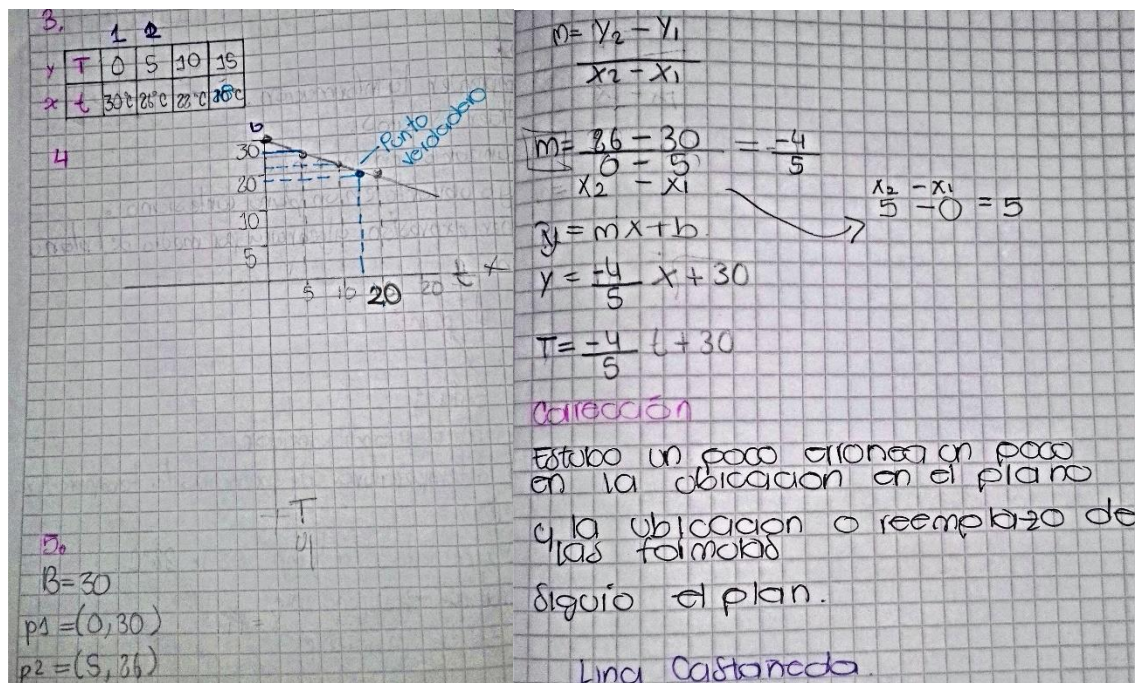 3.
1 2
y T 0 5 10 15
x t 30°C 26°C 22°C 18°C
4
b
Punto
verdadero
30
20
10
5
5 10 20 20 t x
T
5.
B=30
p1 =(0,30)
p2 =(5,26)
m= y2 - y1
x2 - x1
m= 26 - 30 = -4
0 - 5 5
x2 - x1
x2 - x1
5 - 0 = 5
y = mx+b
y = -4 x + 30
5
T= -4 t+30
5
Corrección
Estubo un poco erronea un poco
en la ubicacion en el plano
y la ubicacion o reemplazo de
las formulas
siguio el plan.
Lina Castañeda